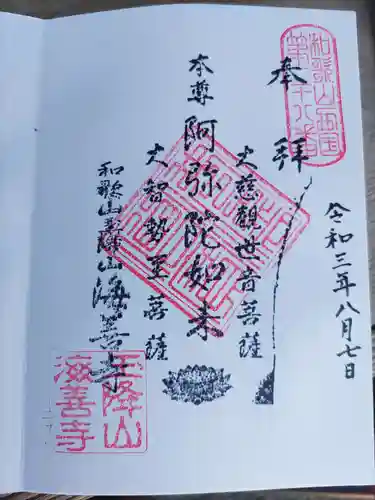 和歌山西国
第十八番
奉拝
令和三年八月七日
大慈觀世音菩薩
本尊
阿弥陀如来
大智勢至菩薩
和歌山王降山
海善寺
王降山
海善寺